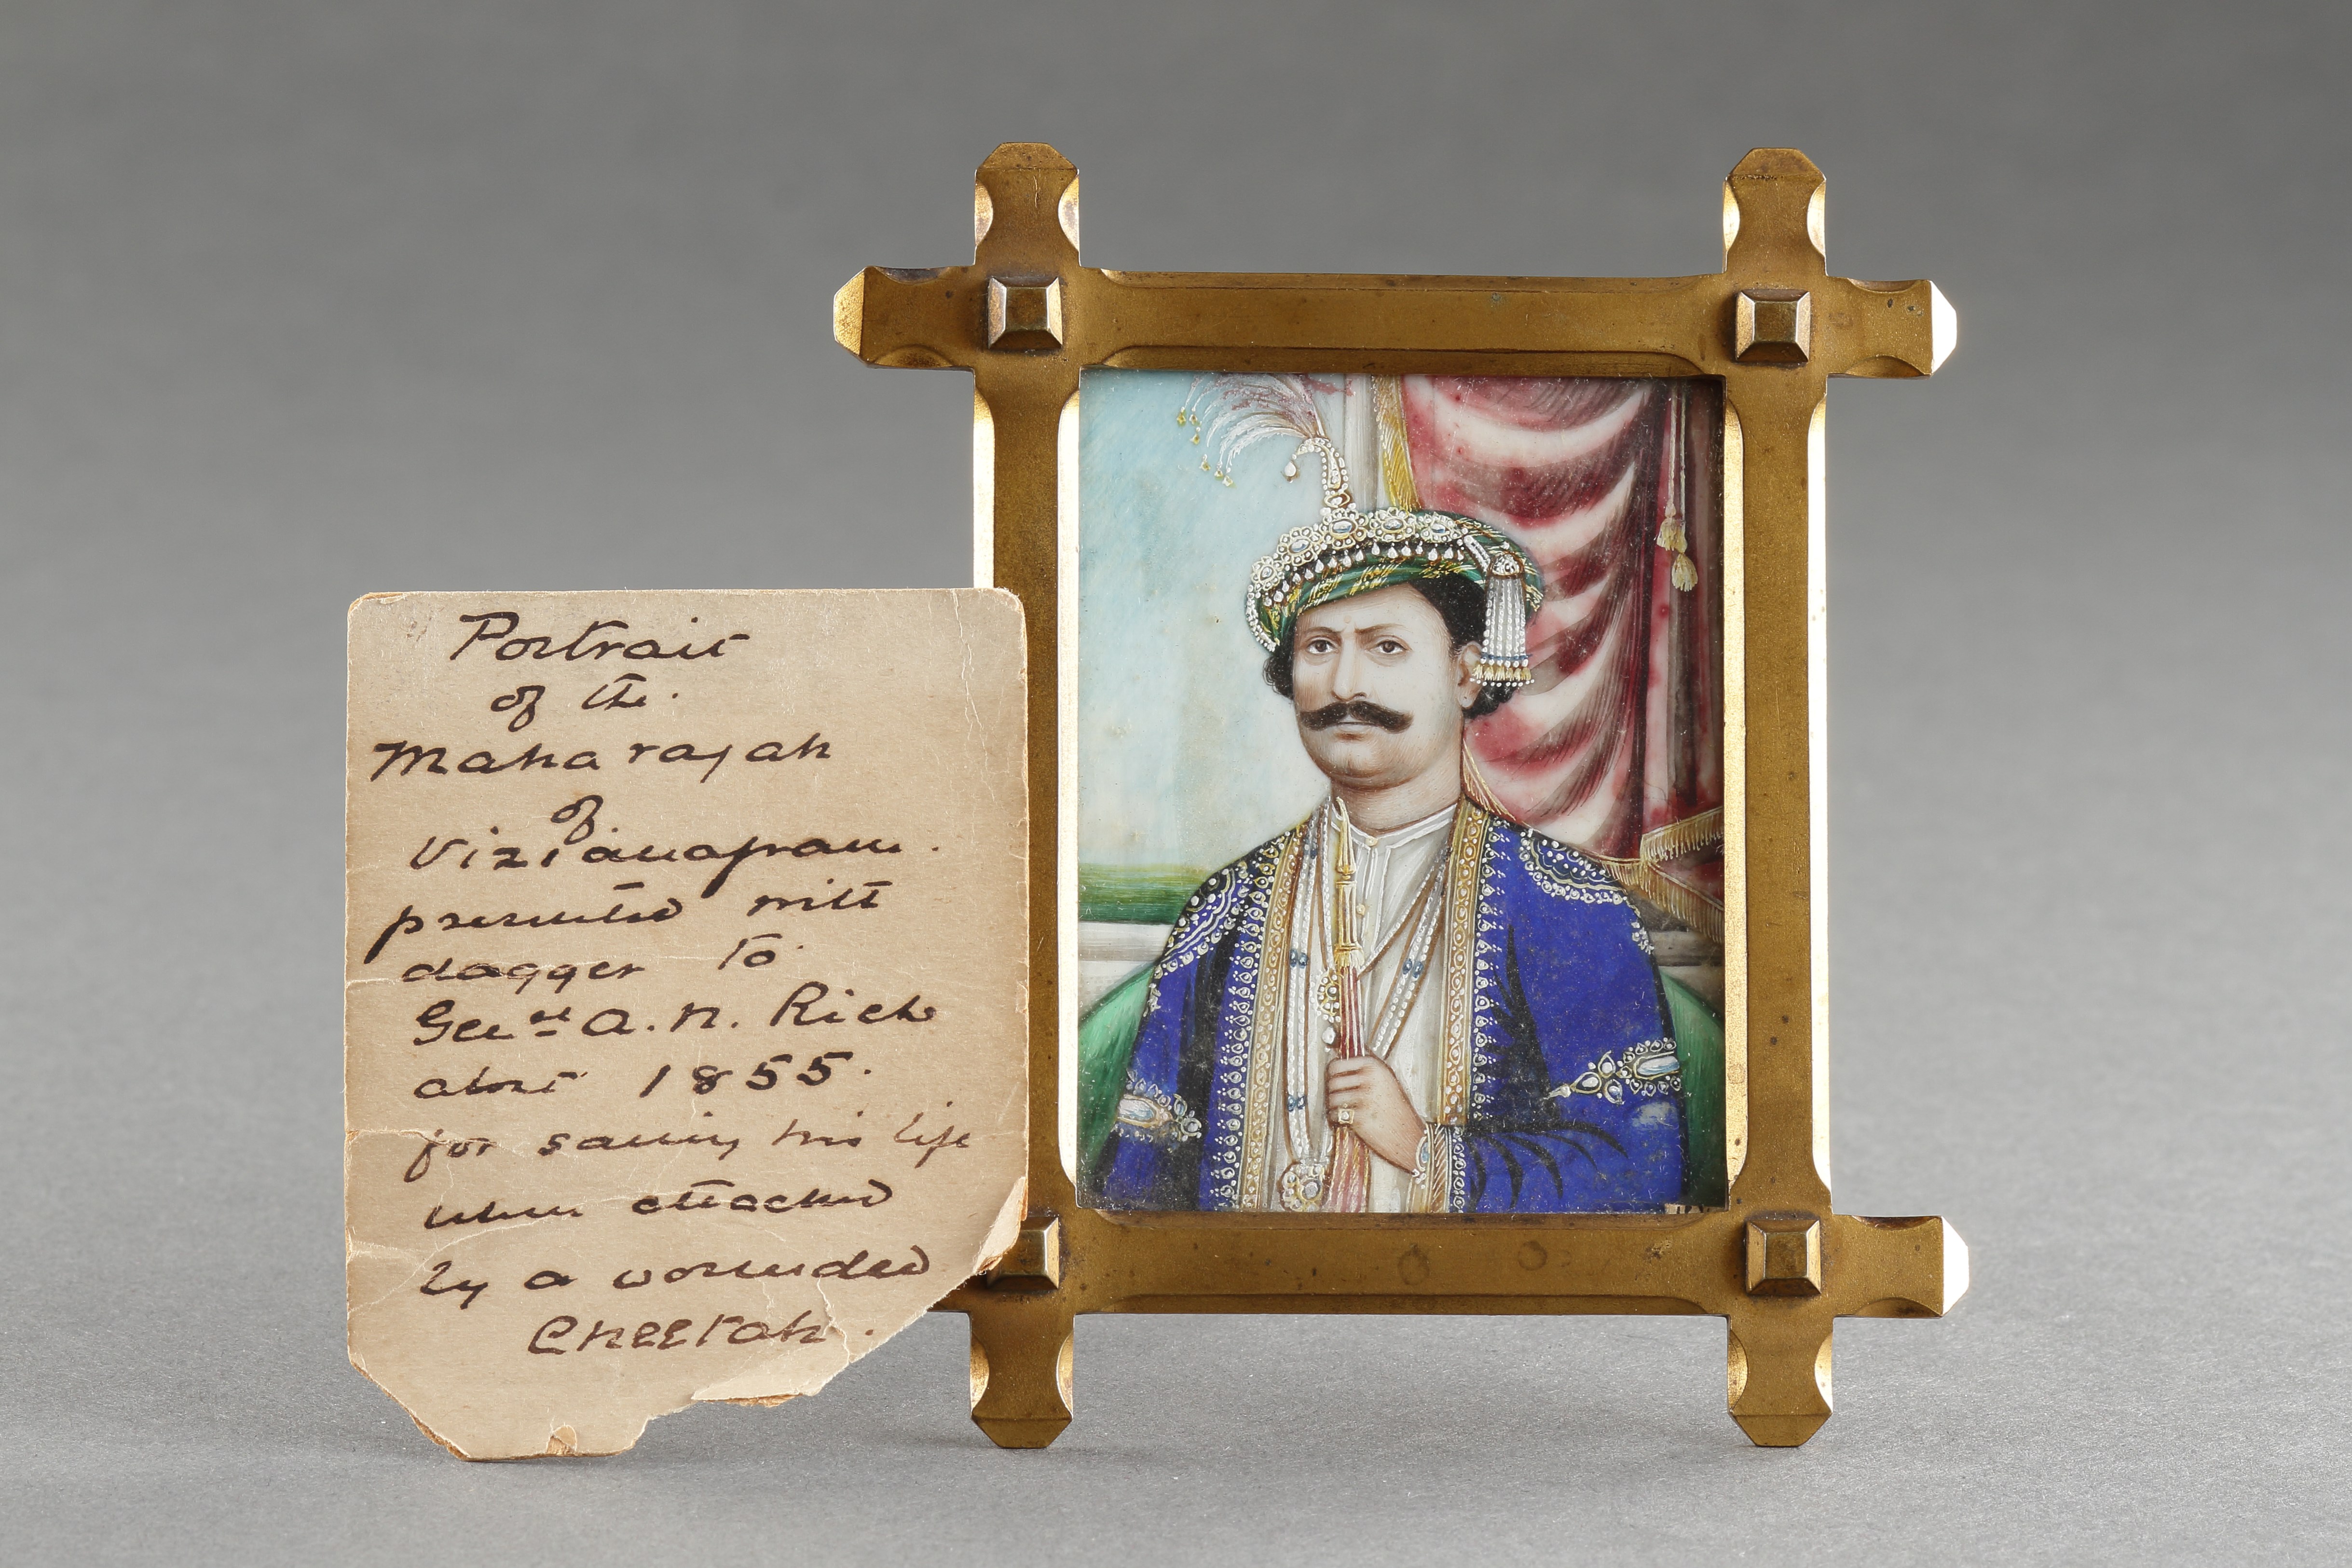 Portrait
of the
Maharajah
of
Vizianapram.
presented with
dagger to
Genᵃˡ A. N. Rich
about 1855.
for saving his life
when attacked
by a wounded
Cheetah.